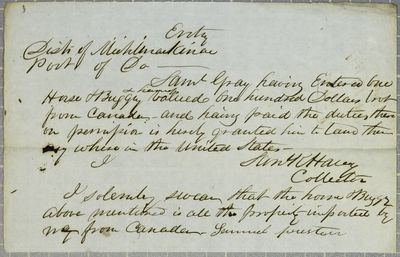 Entry
Dist of Michilmackinac
Port of Do
Saml Gray having Entered one
Horse & Buggy & harness valued one hundred Dollars bot
from Canada and having paid the duties there
on permission is herby granted him to land the
any where in the United States
Collector
I solemnly swear that the horse & Buggy
above mentioned is all the property imported by
me from Canada